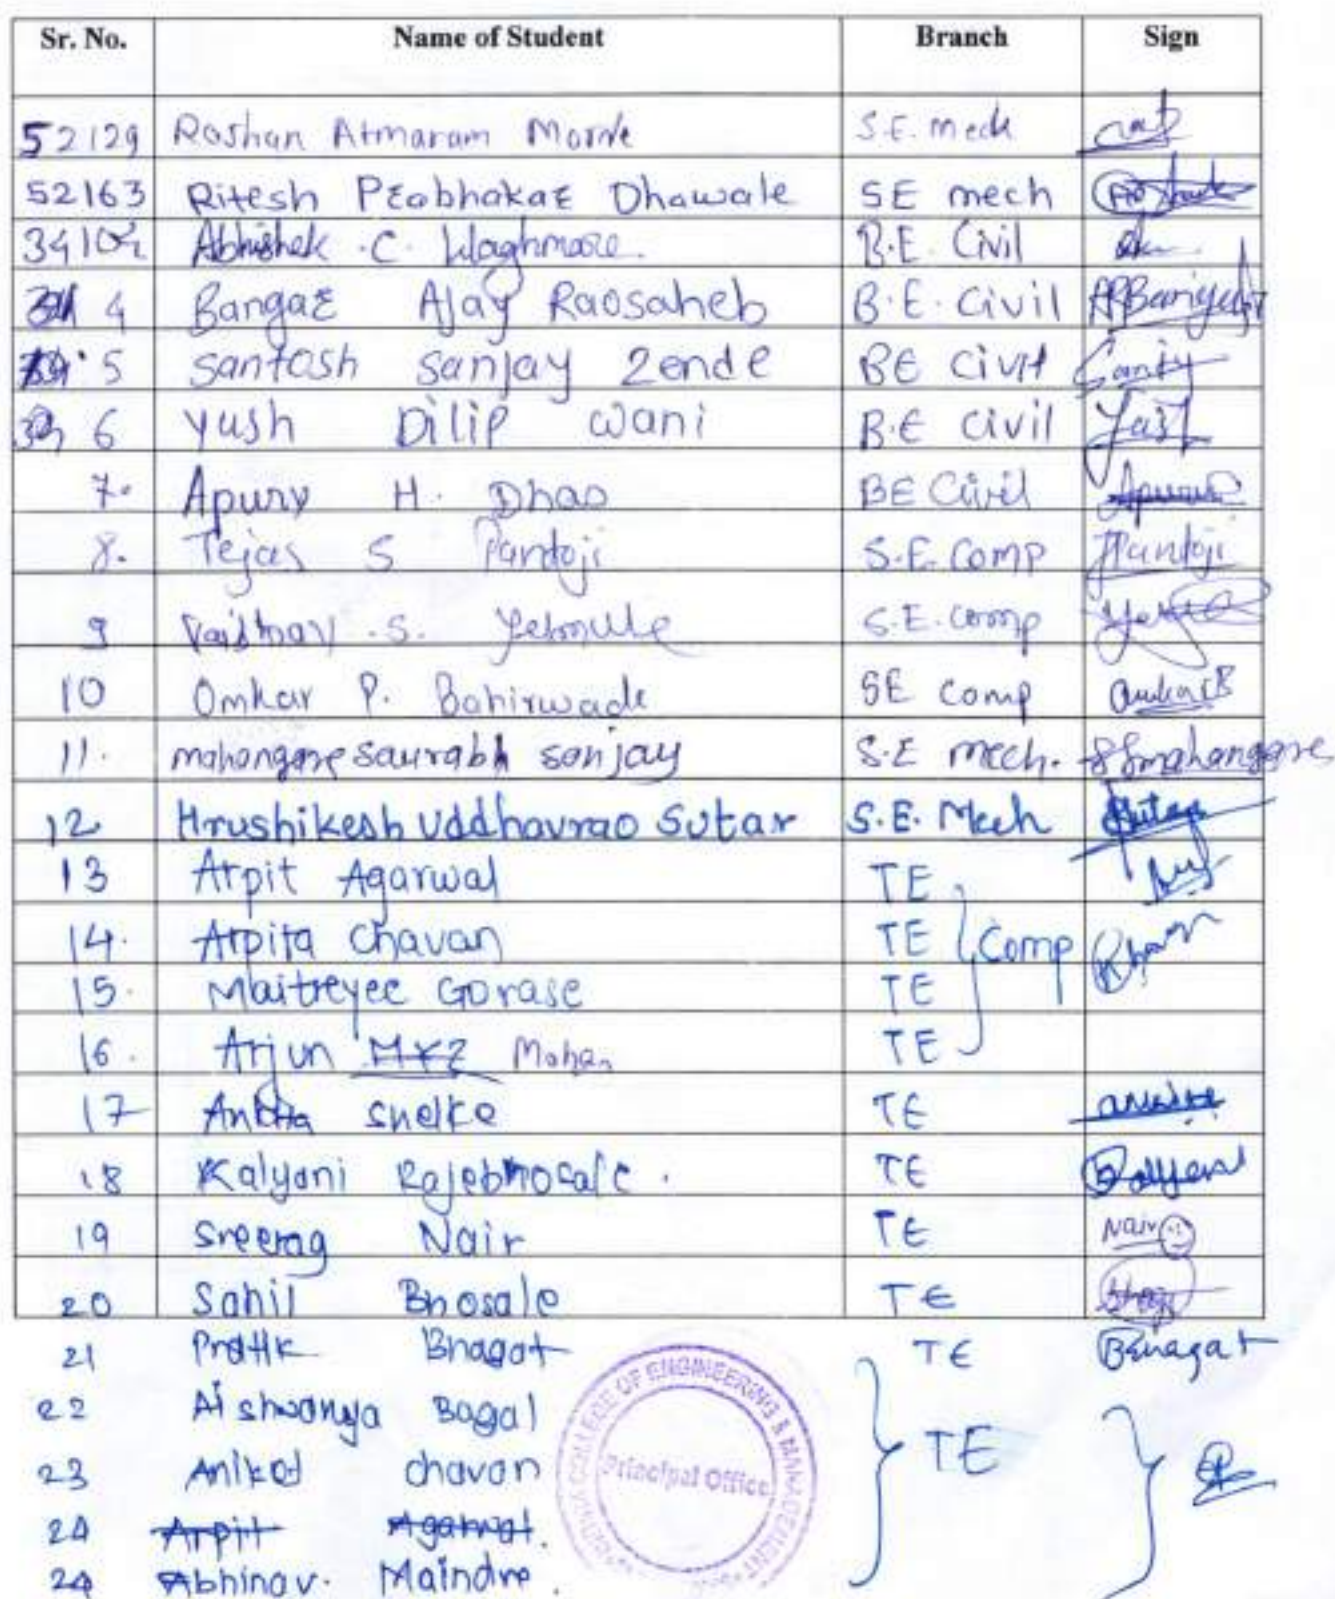 Sr. No. Name of Student Branch Sign
52129 Roshan Atmaram Morve S.E. mech
52163 Ritesh Prabhakar Dhawale SE mech
34102 Abhishek .C. Waghmare. B.E. Civil
4 Bangar Ajay Raosaheb B.E. Civil
5 Santosh Sanjay Zende BE Civil
6 Yash Dilip Wani B.E Civil Yash
7. Apurv H. Dhas BE Civil Apurv
8. Tejas S Pantoji S.E. Comp Pantoji
9 Vaibhav .S. S.E. comp
10 Omkar P. Bahirwade SE comp OmkarB
11. mahangare saurabh sanjay S.E mech. SSmahangare
12 Hrushikesh Uddhavrao Sutar S.E. Mech Sutar
13 Arpit Agarwal TE
14. Arpita Chavan TE Comp
15. Maitreyee Gorase TE
16. Arjun MYZ Mohan TE
17 Ankita Shelke TE
18 Kalyani Rajebhosale . TE
19 Sreerag Nair TE Nair
20 Sahil Bhosale TE
21 Pratik Bhagat TE Bhagat
22 Aishwarya Bagal
23 Aniket chavan TE
24 Arpit Agarwal.
24 Abhinav. Maindre .
COLLEGE OF ENGINEERING & MANAGEMENT
Principal Office